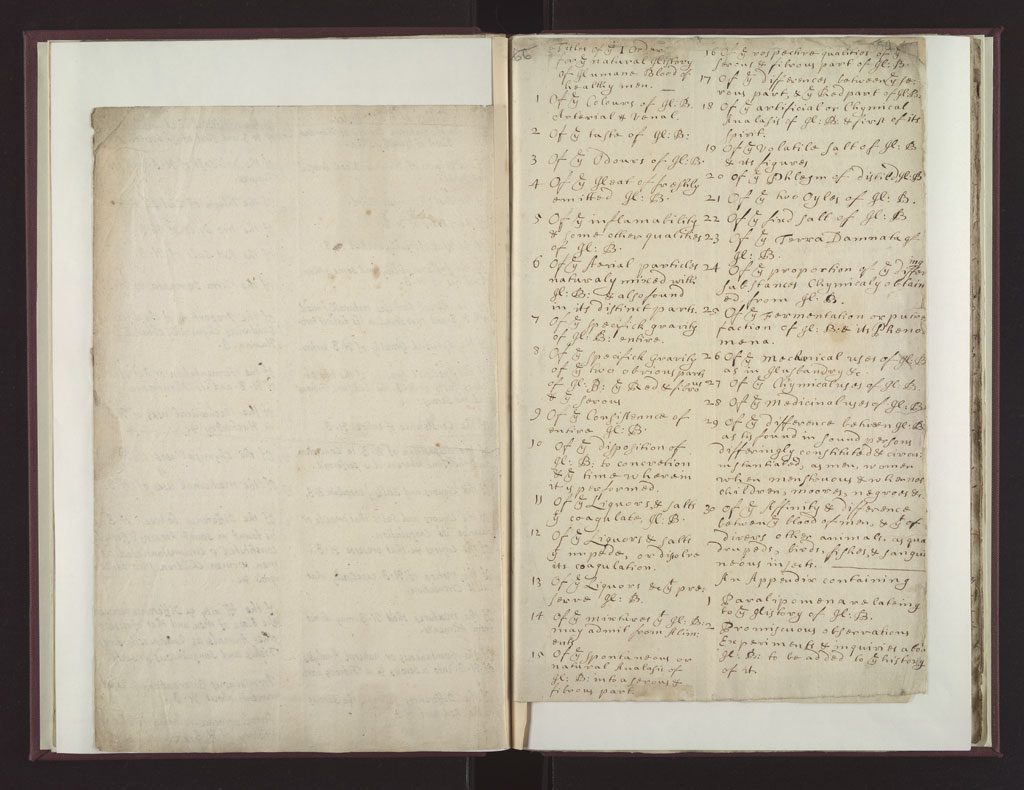 66
Titles of ye 1 Order
for ye natural History
of Humane Blood of
healthy men.
1 Of ye Colours of H: B.
Arterial & venal.
2 Of ye taste of H: B:
3 Of ye Odours of H: B.
4 Of ye Heat of freshly
emitted H: B.
5 Of ye inflamability
& some other qualities
of H: B.
6 Of ye Aerial particles
naturaly mixed with
H: B: & also found
in its distinct parts.
7 Of ye specifick gravity
of H: B: entire.
8 Of ye specifick Gravity
of ye two obvious parts
of H: B: ye Red & fibrous
& ye serous
9 Of ye Consistence of
entire H: B.
10 Of ye disposition of
H: B: to concretion
& ye time wherein
it is performed.
11 Of ye Liquors & salts
yt coagulate H: B.
12 Of ye Liquors & salts
yt impede, or dissolve
its coagulation.
13 Of ye Liquors &c yt pre:
serve H: B.
14 Of ye mixtures yt H: B:
may admit from Alim
ents
15 Of ye spontaneous or
natural Analasis of
H: B: into a serous &
fibrous part
16 Of ye respective qualities of ye
serous & fibrous part of H: B.
17 Of ye differences between ye se:
rous part, & ye Red part of H: B.
18 Of ye artificial or Chymical
Analasis of H: B: & first of its
spirit.
19 Of ye volatile salt of H: B
& its figures
20 Of ye Phlegm of distild H: B
21 Of ye two Oyles of H: B.
22 Of ye fixd salt of H: B
23 Of ye Terra Damnata of
H: B.
24 Of ye proportion of ye differing
substances Chymicaly obtain
ed, from H: B.
25 Of ye Fermentation or putre
faction of H: B: & its Pheno
mena.
26 Of ye mechanical uses of H: B
as in Husbandry &c.
27 Of ye Chymical uses of H: B.
28 Of ye Medicinal uses of H: B
29 Of ye difference between H: B:
as tis found in sound persons
differingly constituted & circu:
mstantiated, as men, women
when menstruous & when not
children, moores, negroes &c.
30 Of ye Affinity & difference
between ye blood of men, & yt of
divers other animals, as qua
drupeds, birds, fishes, & sangui
neous insects.
An Appendix containing
1 Paralipomena relateing
to ye History of H: B.
2 Promiscuous observations
Experiments & inquiries about
H: B: to be added to ye history
of it.